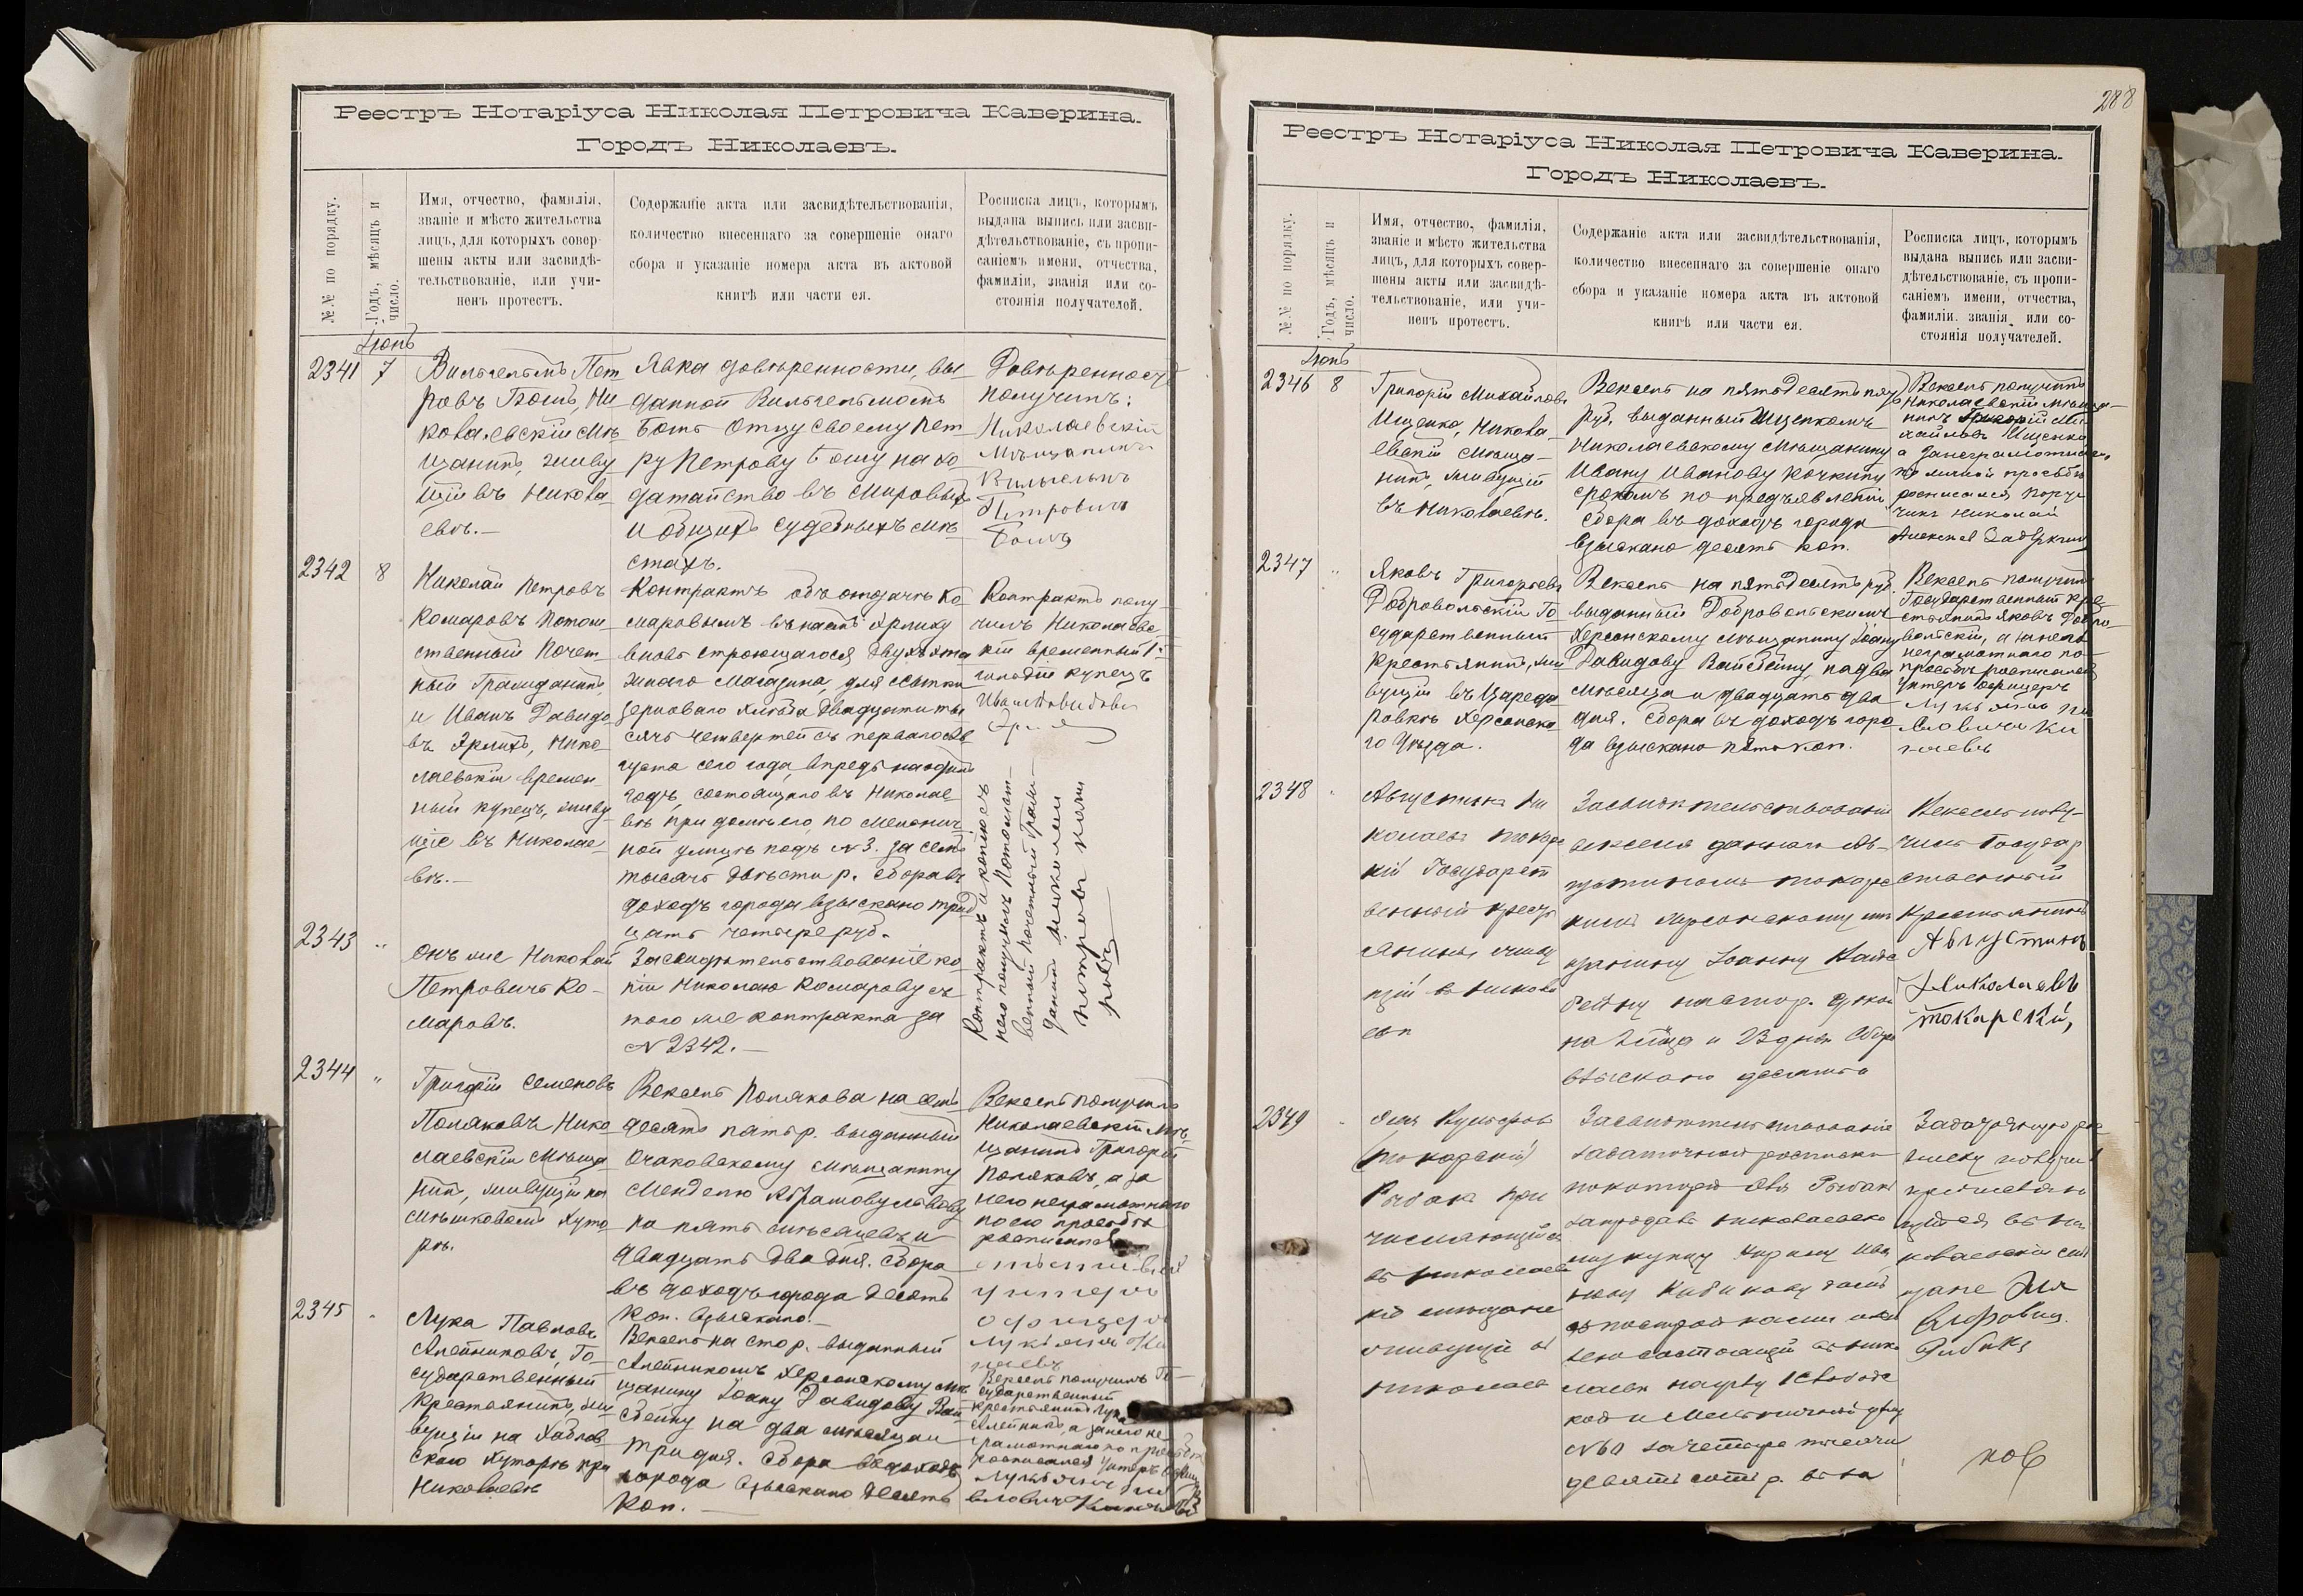 Реестръ Нотаріуса Николая Петровича Каверина.
Городъ Николаевъ.
№№ по порядку.
Годъ, мѣсяцъ и
число.
Имя, отчество, фамилія,
званіе и мѣсто жительства
лицъ, для которыхъ совер-
шены акты или засвидѣ-
тельствованіе, или учи-
ненъ протестъ.
Содержаніе акта или засвидѣтельствованія,
количество внесеннаго за совершеніе онаго
сбора и указаніе номера акта въ актовой
книгѣ или части ея.
Росписка лицъ, которымъ
выдана выпись или засви-
дѣтельствованіе, съ пропи-
саніемъ имени, отчества,
фамиліи, званія или со-
стоянія получателей.
Іюнь
2341 7
Вильгельмъ Пет
ровъ Бошъ, Ни
колаевскій Мѣ
щанинъ, живу
щій въ Никола
евѣ.—
Явка довѣренности, вы-
данной Вильгельмомъ
Бошъ Отцу своему Пет
ру Петрову Бошу на хо
датайство въ Мировыхъ
и общихъ судебныхъ мѣ
стахъ.
Довѣренность
получилъ:
Николаевскій
Мѣщанинъ
Вильгельмъ
Петровичъ
Бошъ
2342 8
Николай Петровъ
Комаровъ Потом
ственный Почет-
ный Гражданинъ
и Иванъ Давидо
въ Эрлихъ, Нико-
лаевскій времен
ный купецъ, живу
щіе въ Николае-
вѣ.—
Контрактъ объ отдачѣ Ко
маровымъ въ наемъ Эрлиху
вновь строющагося двухъэта
жнаго магазина, для ссыпки
зерноваго хлѣба двадцати ты
сячъ четвертей съ перваго Ав
густа сего года, впредь на одинъ
годъ, состоящаго въ Николае-
вѣ при домѣ его, по
ной улицѣ подъ № 3. за семь
тысячъ двѣсти р. сбора въ
доходъ города взыскано трид
цать четыре руб.
Контрактъ полу-
чилъ Николаевс-
кій временный 1й
гильдіи купецъ
Иванъ Давидовъ
Эрлихъ
Контрактъ и копію съ
него получилъ Потомст-
венный почетный Граж-
данинъ Николай
Петровъ Кома
ровъ
2343 "
Онъ же Николай
Петровичъ Ко-
маровъ.
Засвидѣтельствованіе ко-
піи Николаю Комарову съ
того же контракта за
№ 2342.—
2344 "
Григорій Семеновъ
Поляковъ Нико
лаевскій Мѣща
нинъ, живущій на
Мѣшковомъ хуто
рѣ.
Вексель Полякова на семь
десятъ пять р. выданный
Очаковскому мѣщанину
Менделю Абрамову
на пять мѣсяцевъ и
двадцать два дня. Сбора
въ доходъ города десять
коп. взыскано.—
Вексель получилъ
Николаевскій мѣ-
щанинъ Григорій
Поляковъ, а за
него неграмотнаго
по его просьбѣ
росписался
отставной
унтеръ
офицеръ
Лукьянъ Ки
2345 "
Лука Павловъ
Алейниковъ, Го-
сударственный
Крестьянинъ, жи
вущій на
скомъ хуторѣ при
Николаевѣ
Вексель на сто р. выданный
Алейникомъ Херсонскому мѣ
щанину Іоану Давидову Вай
сбейну на два мѣсяца и
три дня. Сбора въ доходъ
города взыскано десять
коп. —
Вексель получилъ Го-
сударственный
крестьянинъ Лука
Алейникъ, а за него не-
грамотнаго по просьбѣ
росписался унтеръ офиц
Лукьянъ Па
вловичъ
288
Реестръ Нотаріуса Николая Петровича Каверина.
Городъ Николаевъ.
№№ по порядку.
Годъ, мѣсяцъ и
число.
Имя, отчество, фамилія,
званіе и мѣсто жительства
лицъ, для которыхъ совер-
шены акты или засвидѣ-
тельствованіе, или учи-
ненъ протестъ.
Содержаніе акта или засвидѣтельствованія,
количество внесеннаго за совершеніе онаго
сбора и указаніе номера акта въ актовой
книгѣ или части ея.
Росписка лицъ, которымъ
выдана выпись или засви-
дѣтельствованіе, съ пропи-
саніемъ имени, отчества,
фамиліи. званія или со-
стоянія получателей.
Іюнь
2346 8
Григорій Михайловъ
Ищенко, Никола-
евскій Мѣща-
нинъ, живущій
въ Николаевѣ.
Вексель на пятьдесятъ пять
руб. выданный Ищенкомъ
Николаевскому Мѣщанину
Ивану Иванову Кочкину
срокомъ по предъявленіи
сбора въ доходъ города
взыскано десять коп.
Вексель получилъ
Николаевскій мѣща-
нинъ Григорій Ми-
хайловъ Ищенко,
а за неграмотнаго,
по личной просьбѣ
росписался Пору
чикъ Николай
2347 "
Яковъ Григорьевъ
Добровольскій Го
сударственный
Крестьянинъ, жи
вущій въ Цареда
ровкѣ Херсонска
го Уѣзда.
Вексель на пятьдесятъ руб.
выданный Добровольскимъ
Херсонскому мѣщанину Іоану
Давидову Вайсбейну, на два
мѣсяца и двадцать два
дня. Сбора въ доходъ горо
да взыскано пять коп.
Вексель получилъ
Государственный кре-
стьянинъ Яковъ Добро
вольскій, а за него
неграмотнаго по
просьбѣ росписался
унтеръ офицеръ
Лукьянъ Па
вловичъ Ки
2348 "
Августинъ Ни
колаевъ Токарс
кій Государст
венный крест
янинъ живу
щій въ Никола
евѣ
Засвидѣтельствованіе
векселя даннаго Ав-
густиномъ Токарс
кимъ Херсонскому мѣ
щанину Іоанну Вайс
бейну на сто р. срокомъ
на 2 мѣсяца и 23 дня Сбора
взыскано десять к
Вексель полу-
чилъ Государ
ственный
Крестьянинъ
Августинъ
Николаевъ
Токарскій,
2349 "
Рыбакъ при
числяющійся
въ Николаевс
кіе мѣщане
живущій въ
Николаевѣ
Засвидѣтельствованіе
задаточной росписки
по которой Рыбакъ
запродалъ Николаевско
му купцу
домъ
съ постройками
состоящій въ Нико
лаевѣ на углу Слободс
кой и Мельничной улиц
№ 60 за четыре тысячи
девятьсотъ р.
Задаточную рос
писку получилъ
причисляю
щійся въ Ни
колаевскіе мѣ
щане
Рыбакъ